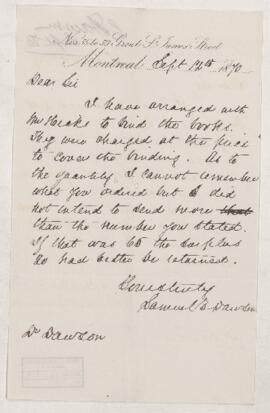 Nos. 55 to 59 Great St. James Street
Montreal Sept 12th 1870
Dear Sir
I have arranged with
Mr Drake to bind the books.
They were charged at the price
to cover the binding. As to
the quantity I cannot remember
what you ordered but I did
not intend to send more that
than the number you stated.
If that was 65 the surplus
had better be returned.
Yours truly
Samuel E Dawson
Dr Dawson